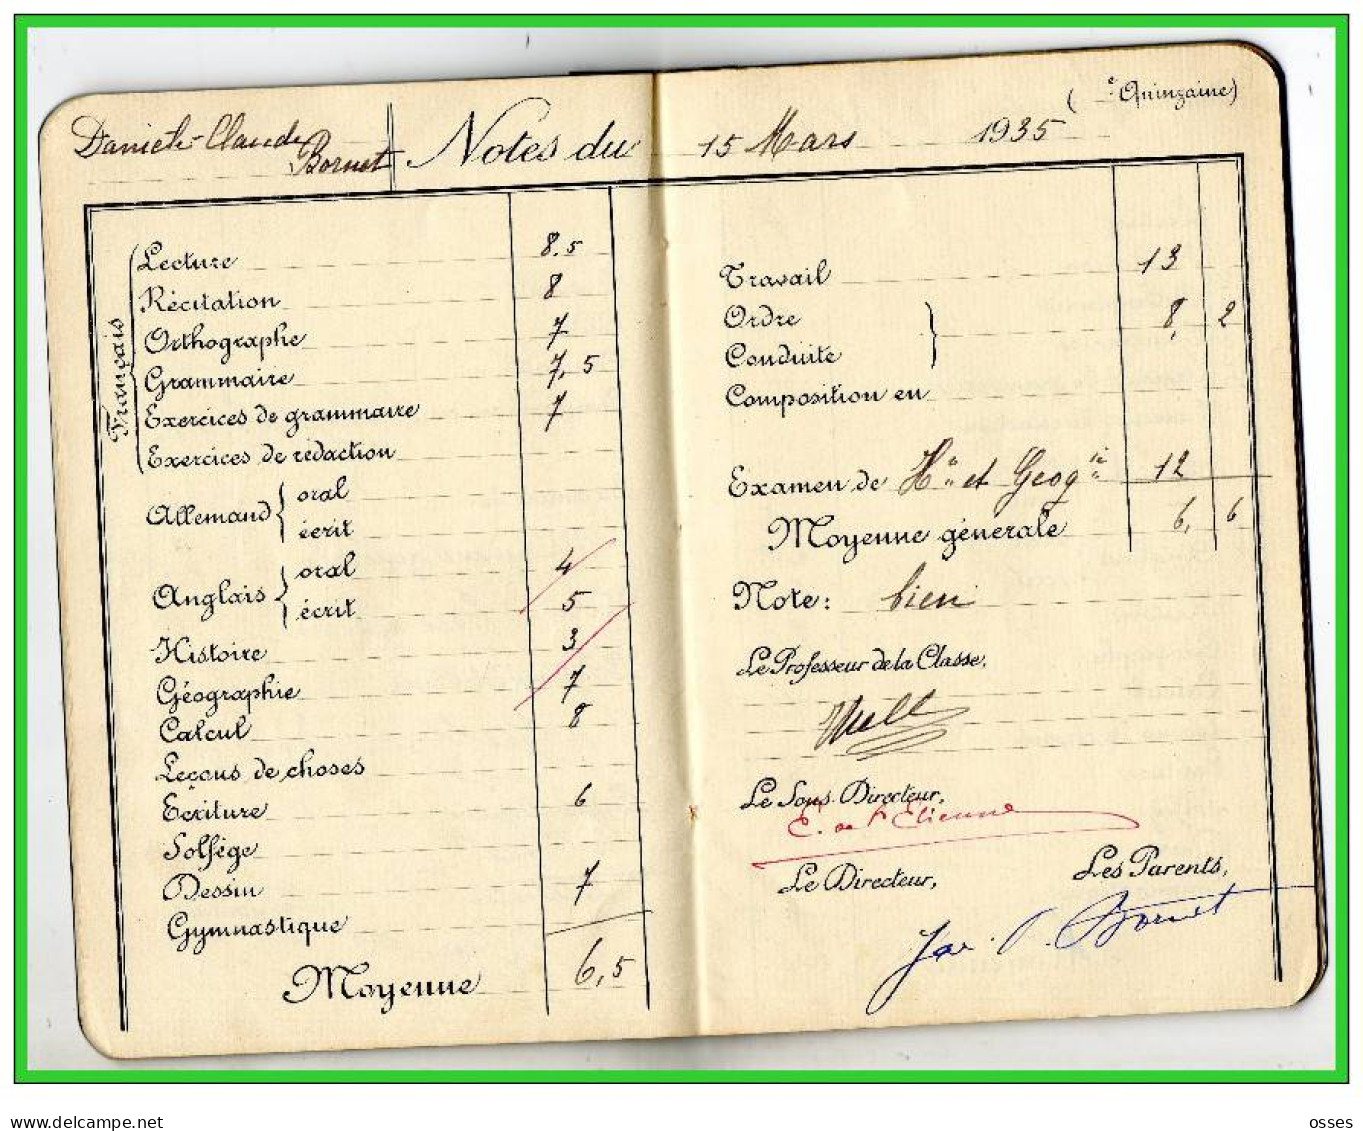 ( e Quinzaine)
Daniele-Claude
Bornet
Notes du 15 Mars 1935
Français
Lecture 8.5
Récitation 8
Orthographe 7
Grammaire 7,5
Exercices de grammaire 7
Exercices de rédaction
Allemand { oral
écrit
Anglais { oral 4
écrit 5
Histoire 3
Géographie 7
Calcul 8
Leçons de choses
Ecriture 6
Solfège
Dessin 7
Gymnastique
Moyenne 6,5
Travail 13
Ordre } 8, 2
Conduite
Composition en
Examen de Hre et Geogie 12
Moyenne générale 6, 6
Note: bien
Le Professeur de la Classe,
Le Sous-Directeur,
E. de St Etienne
Le Directeur, Les Parents,
Bornet
delcampe.net
osses